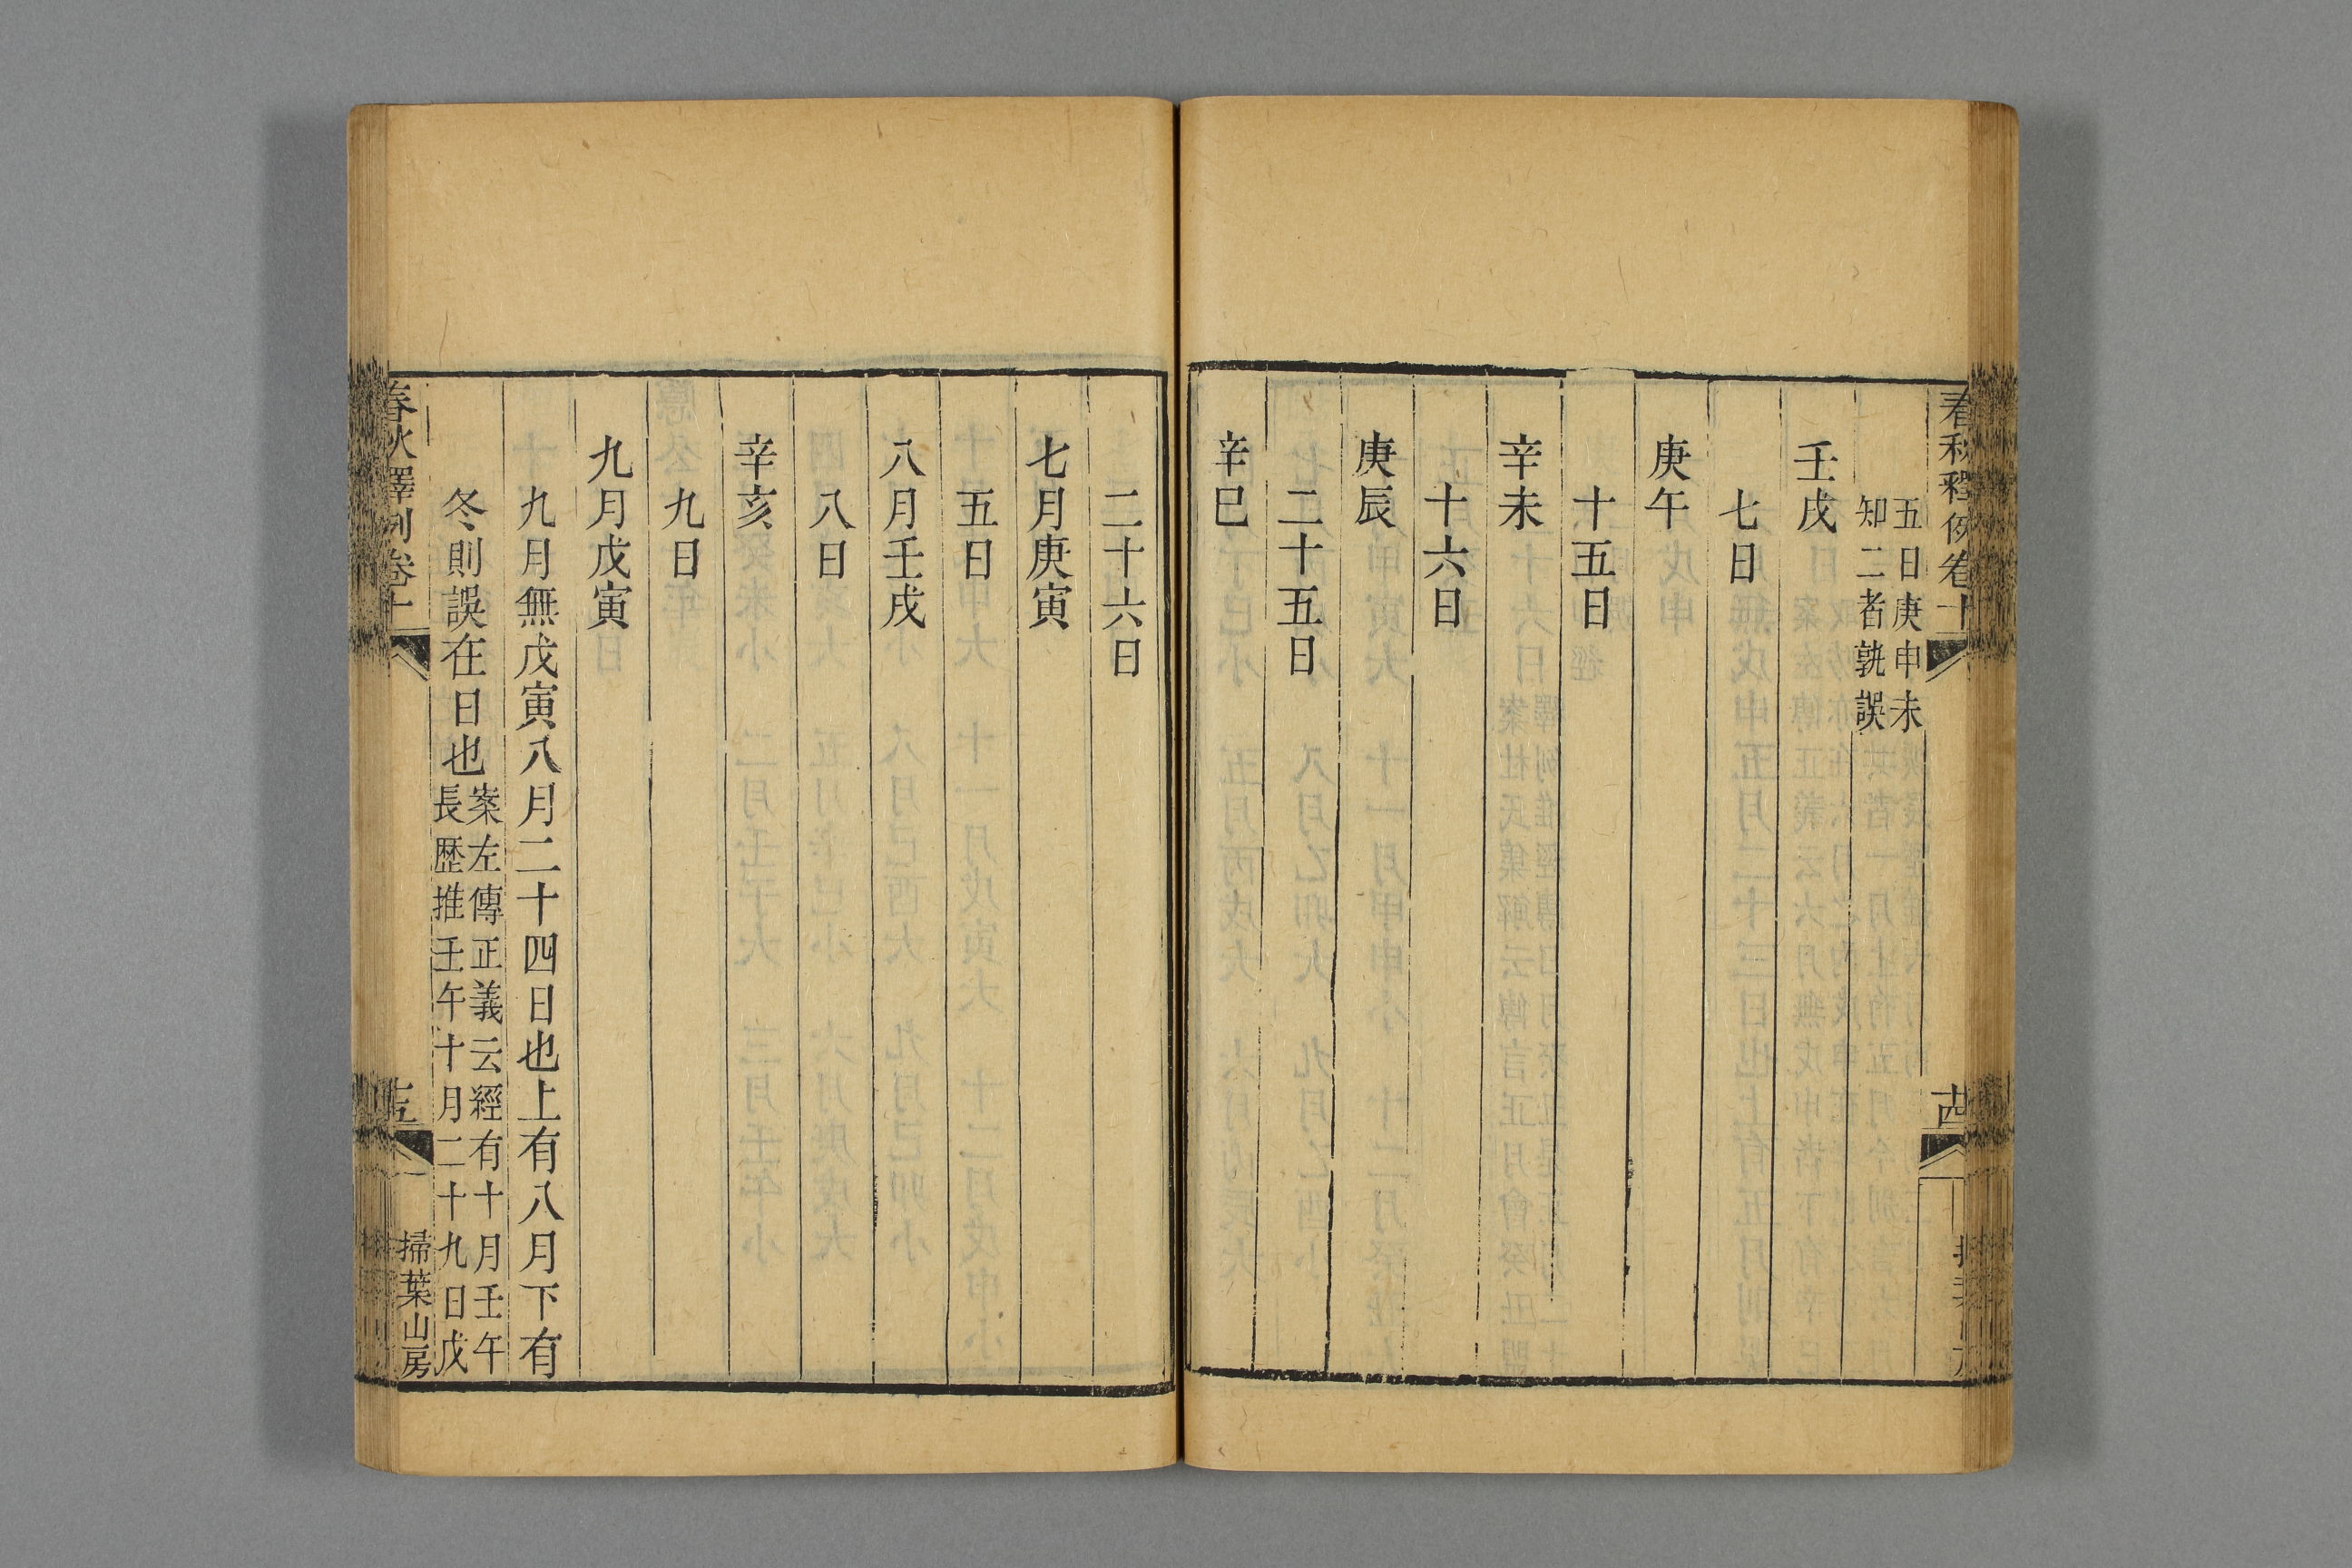 春秋釋例卷十
五日庚申未
知二者孰誤
壬戌
七日
庚午
十五日
辛未
十六日
庚辰
二十五日
辛巳
二十六日
七月庚寅
五日
八月壬戌
八日
辛亥
九日
九月戊寅
九月無戊寅八月二十四日也上有八月下有
冬則誤在日也
案左傳正義云經有十月壬午
長歷推壬午十月二十九日戊
春秋釋例卷十
掃葉山房